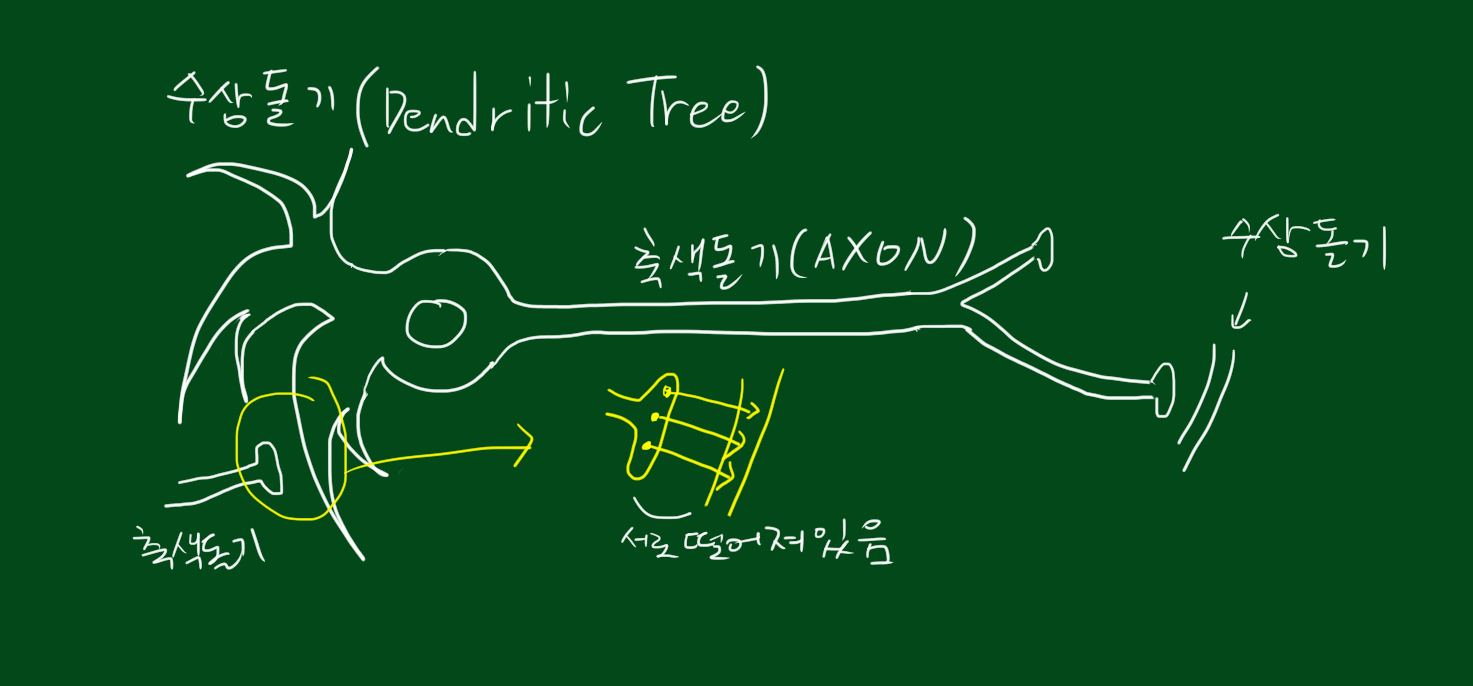 수상돌기(Dendritic Tree)
축색돌기(AXON)
수상돌기
축색돌기
서로떨어져있음